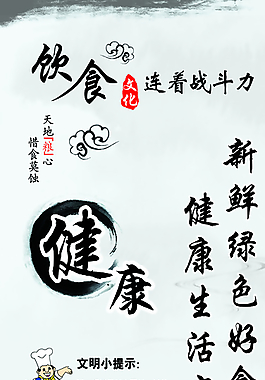 饮食
文化
连着战斗力
天地「粮」心
惜食莫蚀
新鲜绿色好食
健康生活
健康
文明小提示：